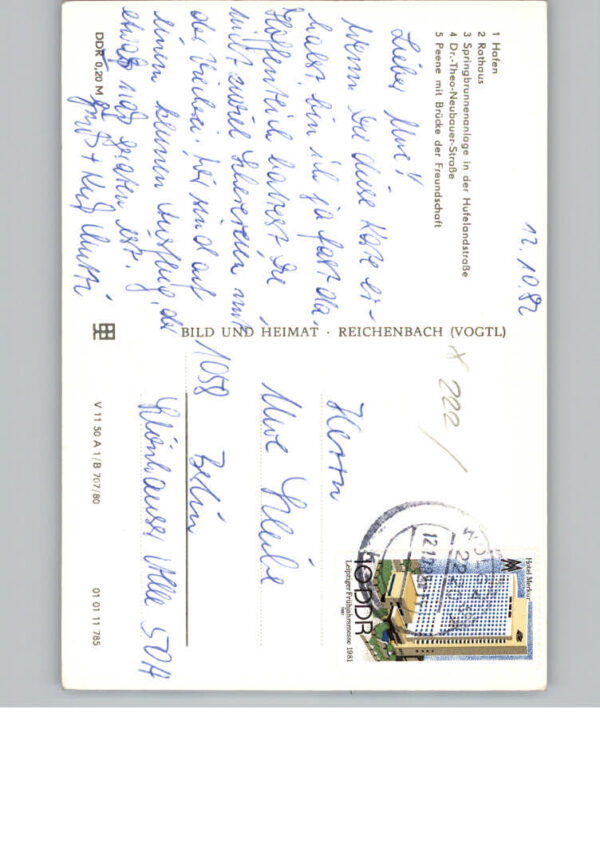 1 Hafen
2 Rathaus
3 Springbrunnenanlage in der Hufelandstraße
4 Dr.-Theo-Neubauer-Straße
5 Peene mit Brücke der Freundschaft
12.10.82
Lieber Uwe!
Wenn Du diese Karte er-
hälst, bin ich ja fast da,
Hoffentlich hattest Du
nicht zuviel Scherereien mit
der Wir sind auf
einem kleinen Ausflug, der
etwas naß geraten ist.
Gruß + Kuß Mutti
DDR 0,20 M
BILD UND HEIMAT · REICHENBACH (VOGTL)
V 11 50 A 1/B 707/80
01 01 11 785
x 222 /
Herrn
Uwe
1058 Berlin
Schönhauser Allee 50A
Hotel Merkur
10 DDR
Leipziger Frühjahrsmesse 1981